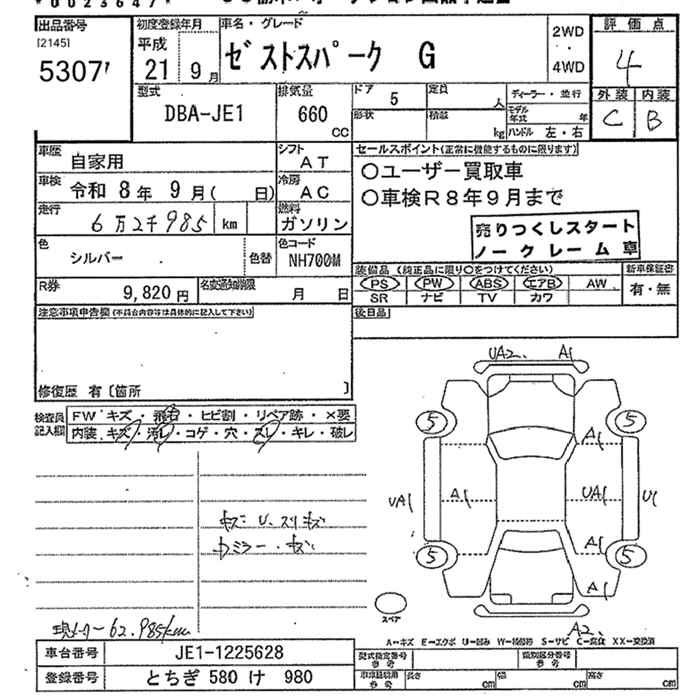 出品番号
[2145]
5307
初度登録年月
平成
21 9月
車名・グレード
ゼストスパーク G
2WD
・
4WD
評価点
4
外装 内装
C B
型式
DBA-JE1
排気量
660
CC
ドア 5
定員 人
形状
積載 kg
ディーラー・並行
モデル年式 年
ハンドル 左・右
車歴
自家用
車検
令和 8年 9月( 日)
走行
6万2千985 km
色
シルバー
色替
シフト
AT
冷房
AC
燃料
ガソリン
色コード
NH700M
R券
9,820円
名変通知期限
月 日
セールスポイント(正常に機能するものに限ります)
○ユーザー買取車
○車検R8年9月まで
売りつくしスタート
ノークレーム車
装備品 (純正品に限り○をつけてください)
PS PW ABS エアB AW
SR ナビ TV カワ
新車保証書
有・無
後日品
注意事項申告欄(不具合内容等は具体的に記入して下さい)
修復歴 有〔箇所 〕
検査員
記入欄
FW キズ・飛石・ヒビ割・リペア跡・×要
内装 キズ・汚レ・コゲ・穴・スレ・キレ・破レ
キズ U. スリキズ
カミラー・キズ
現メーター62.985km
UA2. A1
5 5
A1
UA1 A1 UA1 U1
A1
5 5
A1
スペア
A2.
A-キズ E-エクボ U-凹み W-補修跡 S-サビ C-腐食 XX-交換済
車台番号
JE1-1225628
登録番号
とちぎ 580 け 980
型式指定番号
参考
類別区分番号
参考
車車検証用
参考
長さ cm
幅 cm
高さ cm